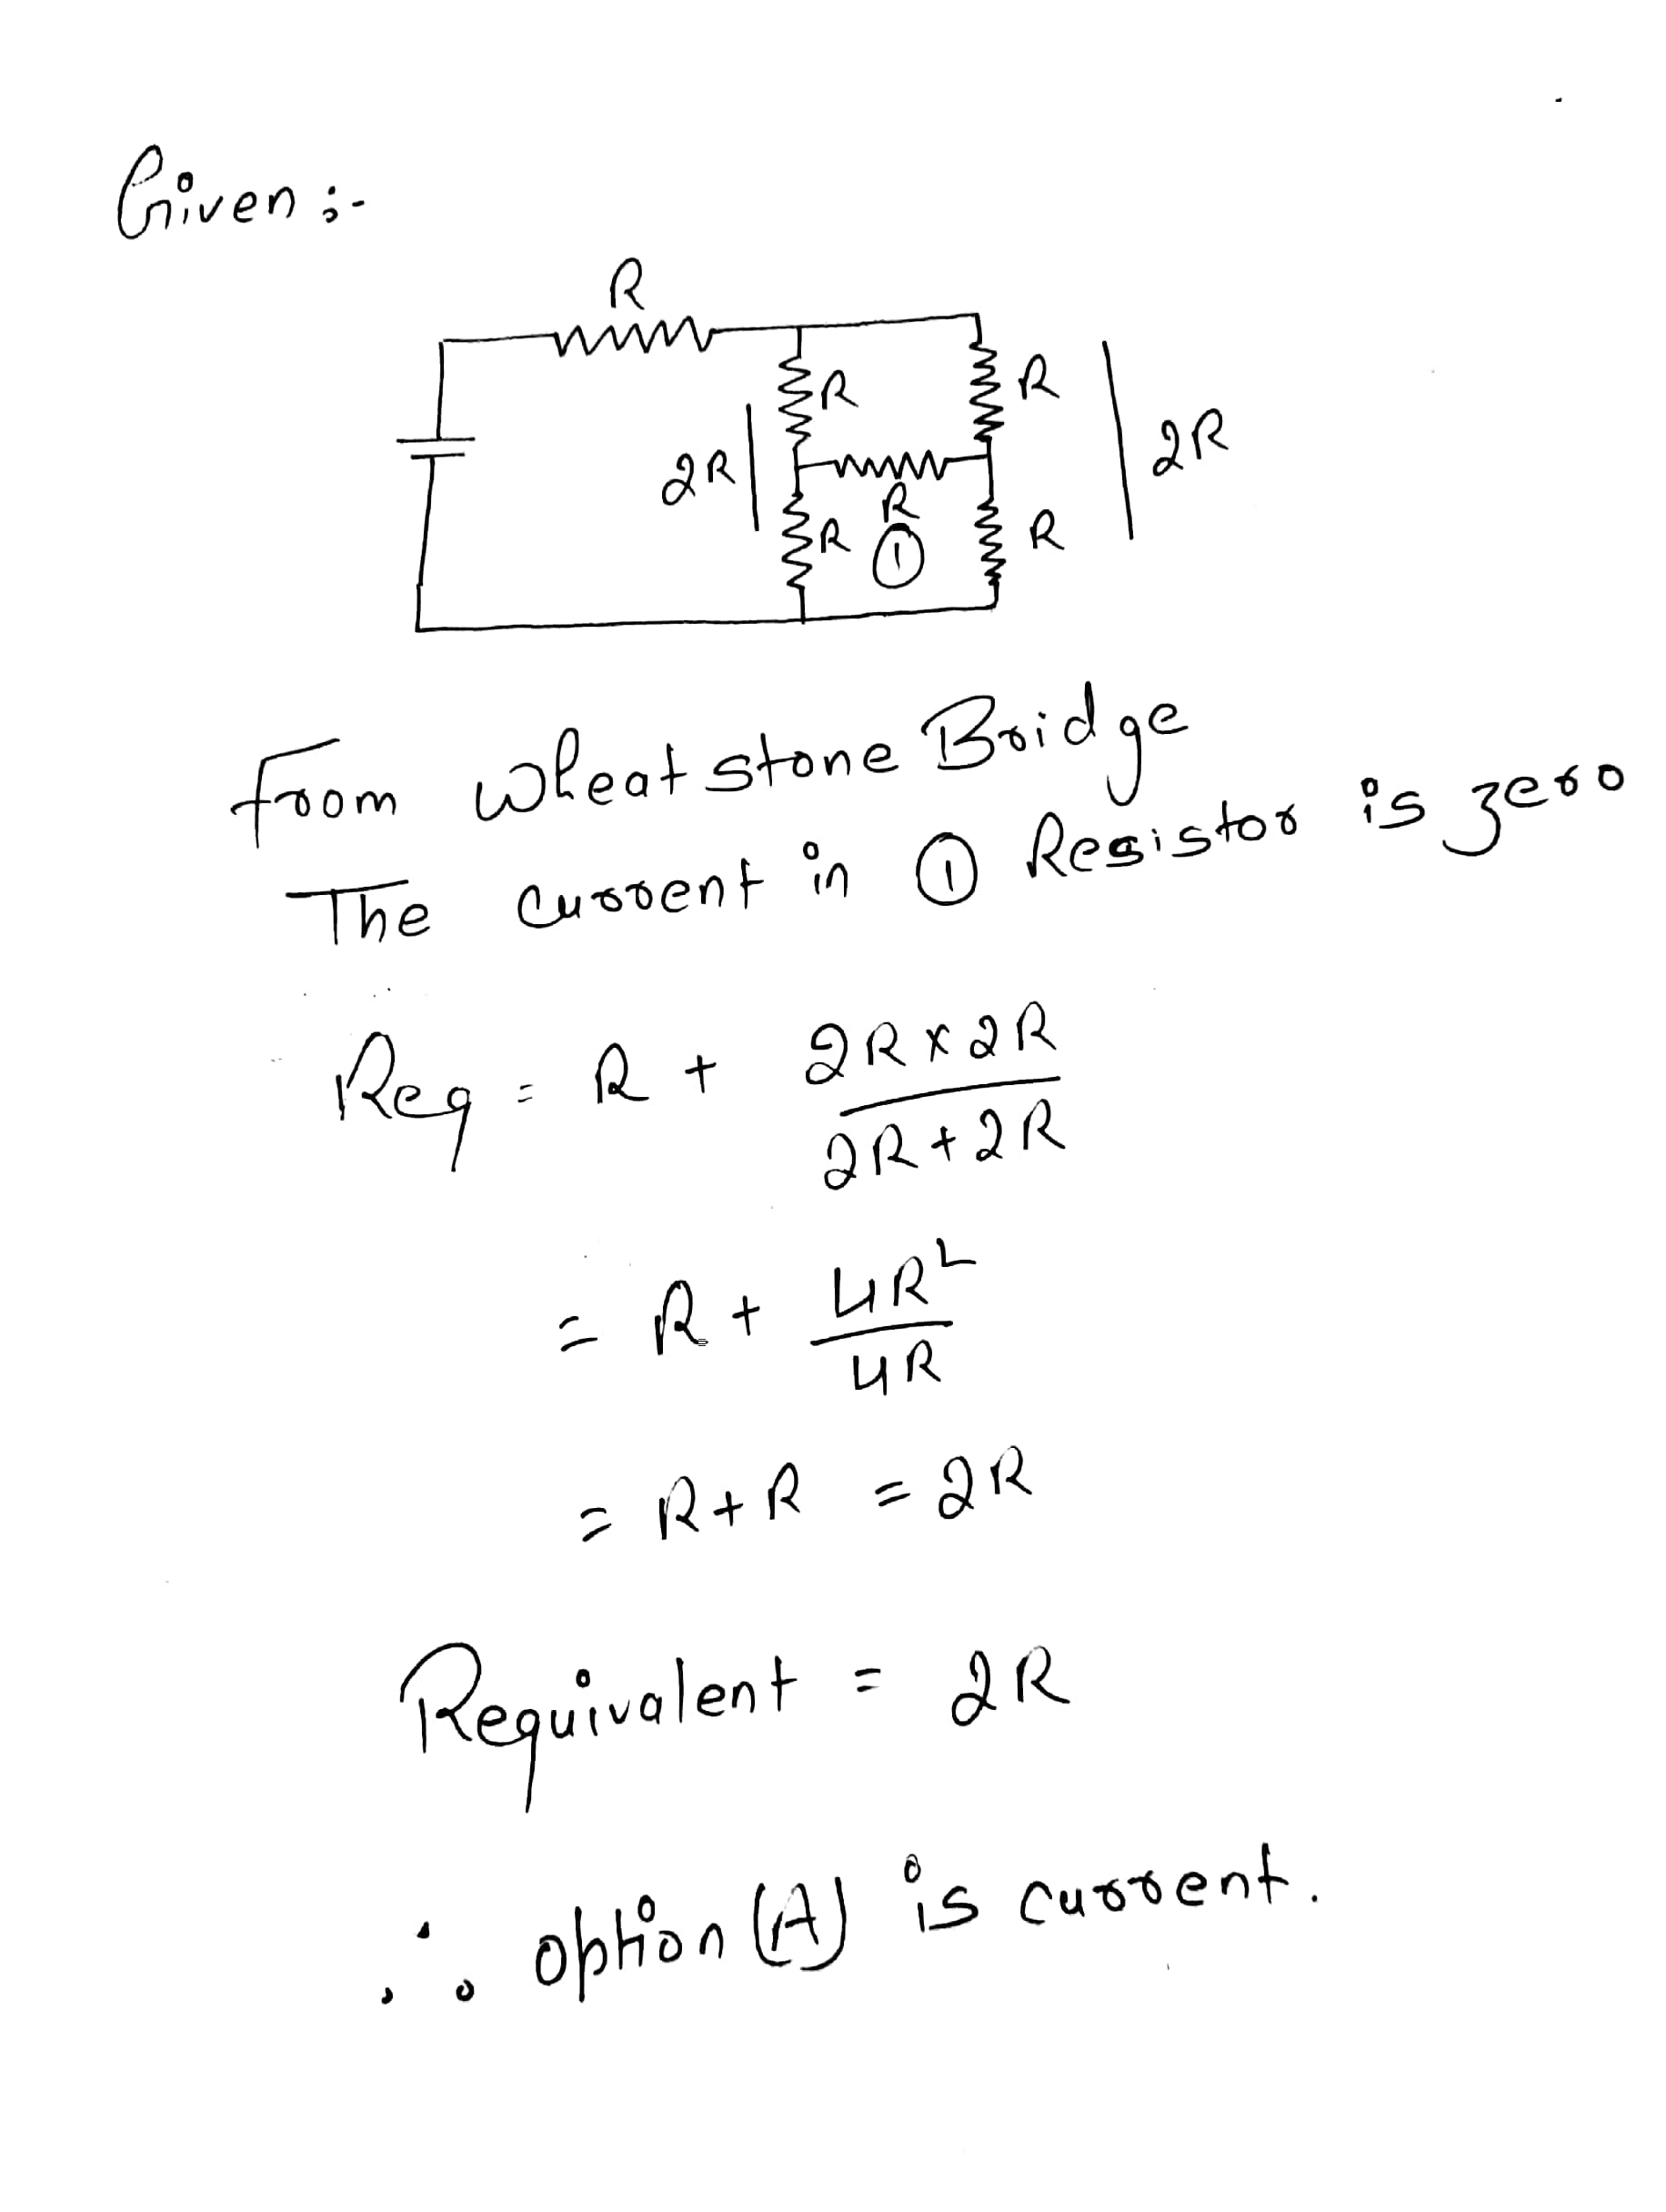 Given :-
R
R
R
2R
2R
R
R
①
R
From Wheatstone Bridge
The current in ① Resistor is zero
Req = R + 2R x 2R / 2R + 2R
= R + 4R² / 4R
= R + R = 2R
Requivalent = 2R
∴ option (A) is current.